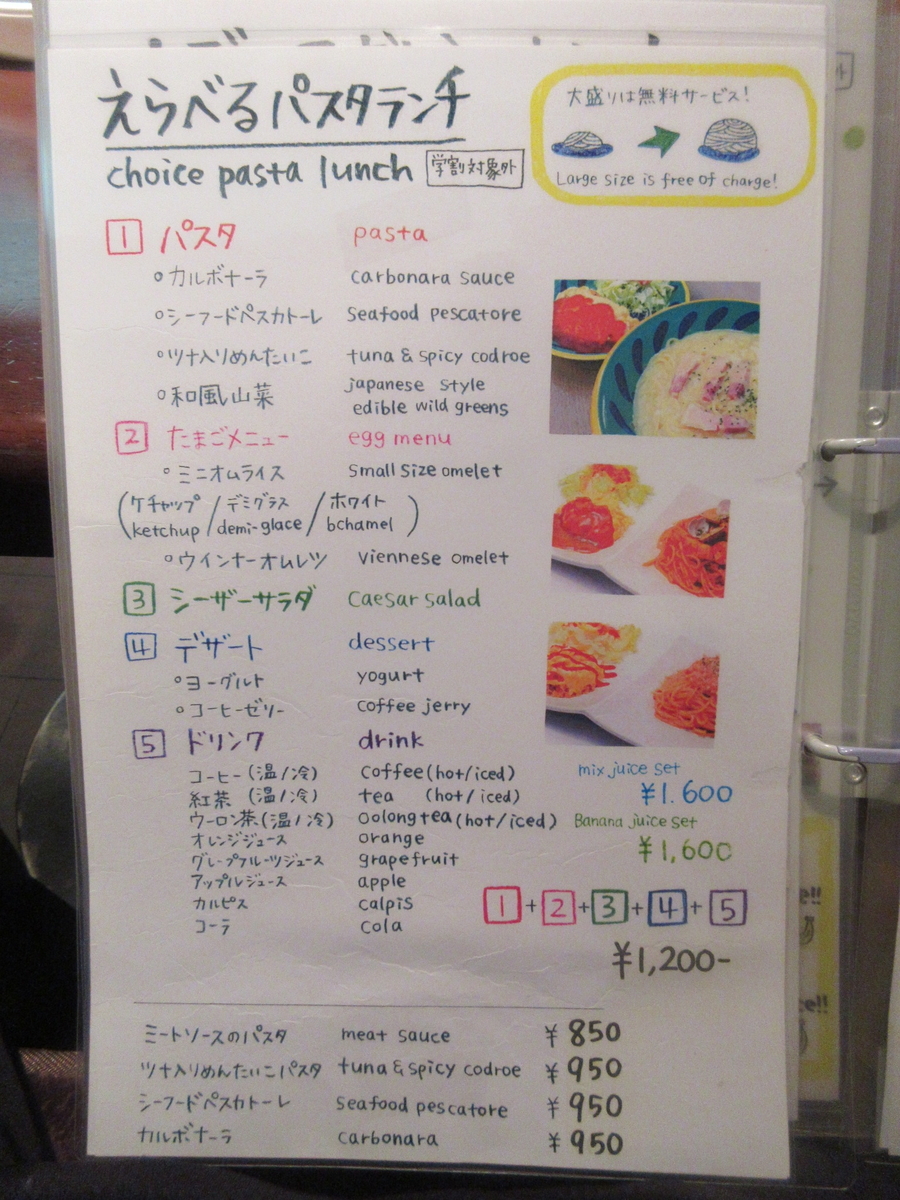 えらべるパスタランチ
choice pasta lunch 学割対象外
大盛りは無料サービス!
Large size is free of charge!
1 パスタ pasta
カルボナーラ carbonara sauce
シーフードペスカトーレ seafood pescatore
ツナ入りめんたいこ tuna & spicy codroe
和風山菜 japanese style
edible wild greens
2 たまごメニュー egg menu
ミニオムライス small size omelet
(ケチャップ/デミグラス/ホワイト
ketchup/demi-glace/bchamel)
ウインナーオムレツ viennese omelet
3 シーザーサラダ caesar salad
4 デザート dessert
ヨーグルト yogurt
コーヒーゼリー coffee jerry
5 ドリンク drink
コーヒー(温/冷) coffee(hot/iced)
紅茶 (温/冷) tea (hot/iced)
ウーロン茶(温/冷) oolong tea (hot/iced)
オレンジジュース orange
グレープフルーツジュース grapefruit
アップルジュース apple
カルピス calpis
コーラ cola
mix juice set
¥1.600
Banana juice set
¥1,600
1+2+3+4+5
¥1,200-
ミートソースのパスタ meat sauce ¥850
ツナ入りめんたいこパスタ tuna & spicy codroe ¥950
シーフードペスカトーレ seafood pescatore ¥950
カルボナーラ carbonara ¥950